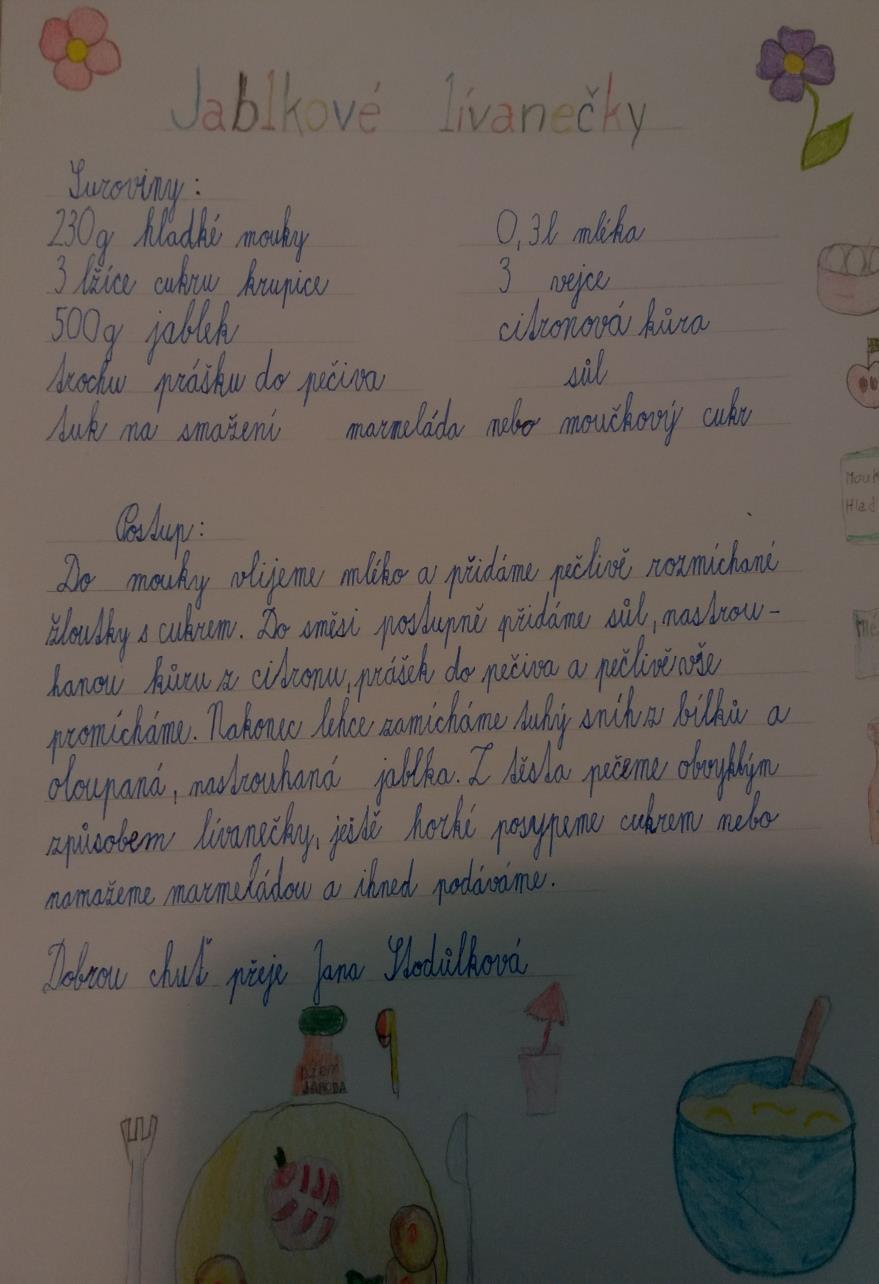 Jablkové lívanečky
Suroviny:
230g hladké mouky 0,3l mléka
3 lžíce cukru krupice 3 vejce
500g jablek citronová kůra
trochu prášku do pečiva sůl
tuk na smažení marmeláda nebo moučkový cukr
Postup:
Do mouky vlijeme mléko a přidáme pečlivě rozmíchané
žloutky s cukrem. Do směsi postupně přidáme sůl, nastrou-
hanou kůru z citronu, prášek do pečiva a pečlivě vše
promícháme. Nakonec lehce zamícháme tuhý sníh z bílků a
oloupaná, nastrouhaná jablka. Z těsta pečeme obvyklým
způsobem lívanečky, ještě horké posypeme cukrem nebo
namažeme marmeládou a ihned podáváme.
Dobrou chuť přeje Jana Stodůlková
Mouk
Hlad
Mlé
DŽEM
JAHODA